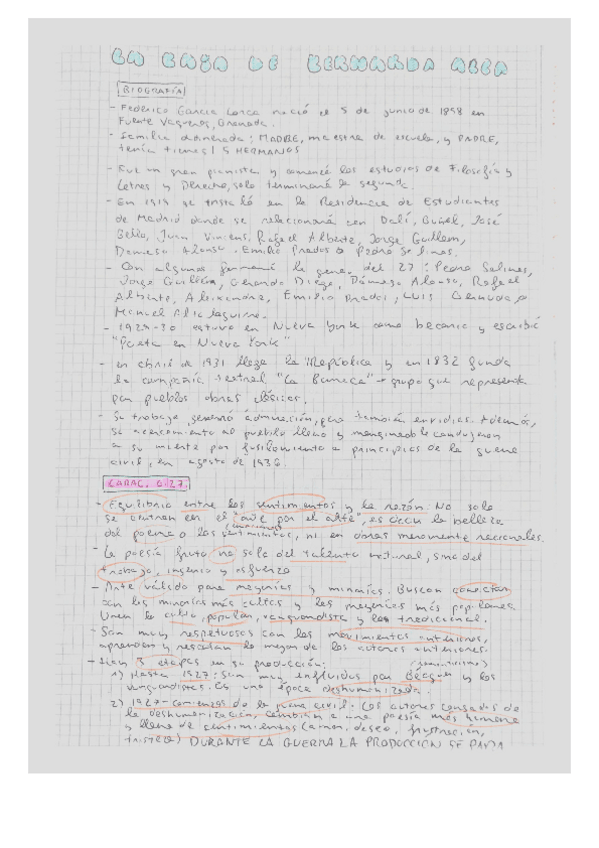 LA CASA DE BERNARDA ALBA
BIOGRAFÍA
- Federico García Lorca nació el 5 de junio de 1898 en
Fuente Vaqueros, Granada.
- Familia adinerada: MADRE, maestra de escuela, y PADRE,
tenía tierras | 5 HERMANOS
- Fue un gran pianista y comenzó los estudios de Filosofía y
Letras y Derecho, solo terminará la segunda.
- En 1919 se instaló en la Residencia de Estudiantes
de Madrid donde se relacionará con Dalí, Buñel, José
Bello, Juan Vincens, Rafael Alberti, Jorge Guillem,
Damaso Alonso, Emilio Prados o Pedro Salinas.
- Con algunos formará la gene. del 27: Pedro Salinas,
Jorge Guillén, Gerardo Diego, Dámaso Alonso, Rafael
Alberti, Aleixandre, Emilio Prados, LUIS Cernuda o
Manuel Altolaguirre.
- 1929-30 estuvo en Nueva York como becario y escribió
"Poeta en Nueva York"
- en abril de 1931 llega la República y en 1832 funda
la compañía teatral "La Barraca" → grupo que representa
por pueblos obras clásicas.
- Su trabajo generó admiración, pero también envidias. Además,
su acercamiento al pueblo llano y marginado le condujeron
a su muerte por fusilamiento a principios de la guerra
civil, en agosto de 1936.
CARAC. G.27.
- Equilibrio entre los sentimientos y la razón. No solo
se centran en el "arte por el arte", es decir la belleza
del poema o los sentimientos, ni en obras meramente racionales.
- La poesía fruto no solo del talento natural, sino del
trabajo, ingenio y esfuerzo
- Arte válido para mayorías y minorías. Buscan conectar
con las minorías más cultas y las mayorías más populares.
Unen lo culto, popular, vanguardista y lo tradicional.
- Son muy respetuosos con los movimientos anteriores,
aprenden y rescatan lo mejor de los autores anteriores.
- Hay 3 etapas en su producción:
1) Hasta 1927: son muy influidos por Bécquer y los
vanguardistas. Es una época deshumanizada.
2) 1927-comienzos de la guerra civil: Los autores cansados de
la deshumanización, cambian a una poesía más humana
y llena de sentimientos (amor, deseo, frustración,
tristeza) DURANTE LA GUERRA LA PRODUCCION SE